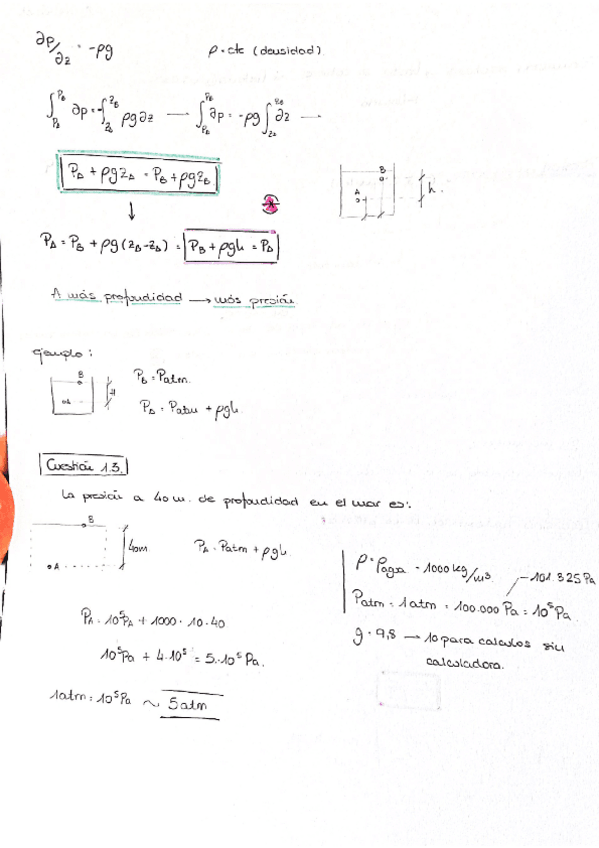 ∂p/∂z = -ρg     ρ = cte (densidad)
∫_{P_A}^{P_B} ∂p = -∫_{z_A}^{z_B} ρg∂z → ∫_{P_A}^{P_B} ∂p = -ρg ∫_{z_A}^{z_B} ∂z →
P_A + ρgz_A = P_B + ρgz_B
B
A
h
P_A = P_B + ρg(z_B - z_A) = P_B + ρgh = P_A
A más profundidad → más presión
Ejemplo:
B
A
P_B = Patm.
P_A = Patm + ρgh.
Cuestión 1.3.
La presión a 40 m. de profundidad en el mar es:
B
A
40m
P_A = Patm + ρgh.
ρ = ρagua = 1000 kg/m³
101.325 Pa
Patm = 1atm = 100.000 Pa = 10⁵ Pa
g = 9,8 → 10 para calculos sin
calculadora.
P_A = 10⁵ Pa + 1000 · 10 · 40
10⁵ Pa + 4 · 10⁵ = 5 · 10⁵ Pa.
1atm = 10⁵ Pa ~ 5 atm